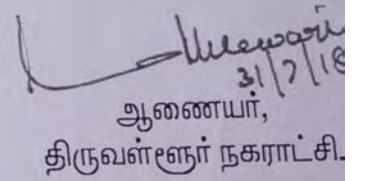 31/7/18
ஆணையர்,
திருவள்ளூர் நகராட்சி.